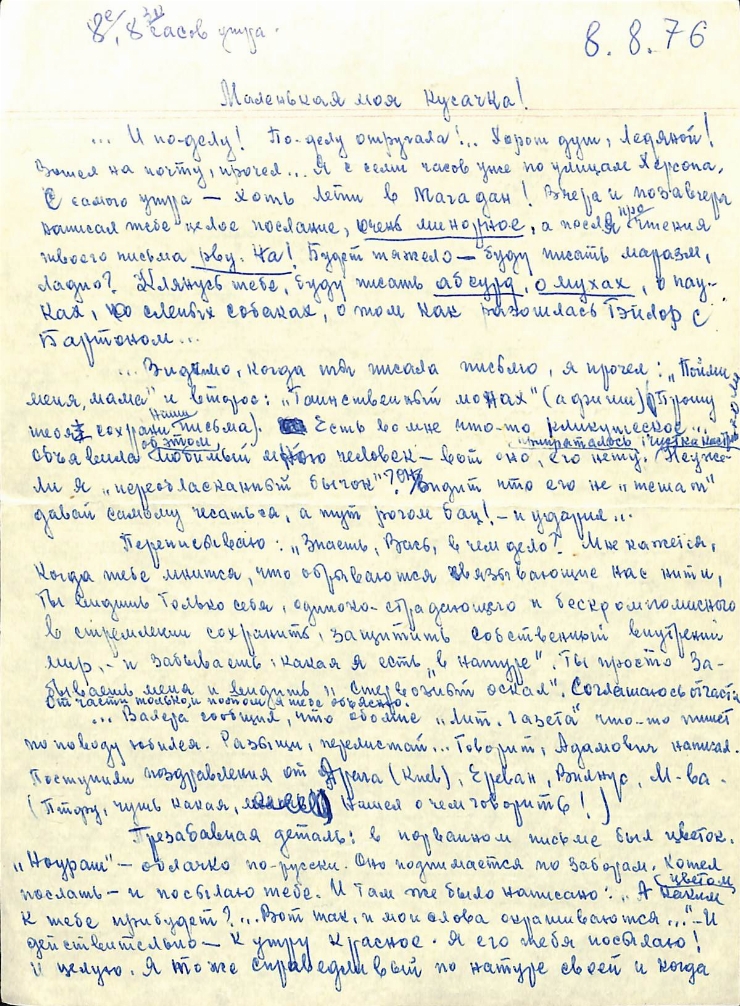 8 часов утра.
8.8.76
Маленькая моя Кусачка!
... И по-делу! По-делу отругала!.. Хорош душ, ледяной!
Зашел на почту, прочел... Я с семи часов уже по улицам Херсона.
С самого утра — хоть лети в Магадан! Вчера и позавчера
написал тебе целое послание, очень минорное, а после прочтения
твоего письма рву. На! Будет тяжело — буду писать маразм,
ладно? Клянусь тебе, буду писать абсурд, о мухах, о пау-
ках, о слепых собаках, о том как разошлась Тэйлор с
Бартоном...
... Видимо, когда ты писала письмо, я прочел: „Пойми
меня, мама" и второе: „Таинственный монах" (Прошу
тебя сохрани наши письма). Есть во мне что-то
любимый мною человек — вот оно, его нету. Неуже-
ли я „переласканный бычок"? Видит что его не „чешат"
давай самому чесаться, а тут рогом бац! — и ударил...
Переписываю: „Знаешь, Вась, в чем дело? Мне кажется,
когда тебе мнится, что обрываются связывающие нас нити,
ты видишь только себя, одиноко-страдающего и бескромпомисного
в стремлении сохранить, защитить собственный внутрений
мир, — и забываешь: какая я есть „в натуре". Ты просто за-
бываешь меня и видишь „стервозный оскал". Соглашаюсь отчасти
От части только, и потом я тебе объясню.
... Валера сообщил, что обо мне „Лит. газета" что-то пишет
по поводу юбилея. Разыщи, перелистай... Говорит, Адамович написал.
Поступили поздравления от Драча (Киев), Ереван, Вильнус, М-ва.
(Птфу, чушь какая, нашел о чем говорить!)
Презабавная деталь: в порванном письме был цветок.
„Ноураш" — облачко по-русски. Оно поднимается по заборам. Хотел
послать — и посылаю тебе. И там же было написано: „А каким цветом
к тебе прибудет?... Вот так, и мои слова окрашиваются..." — И
действительно — к утру красное. Я его тебя посылаю!
И целую. Я тоже справедливый по натуре своей и когда